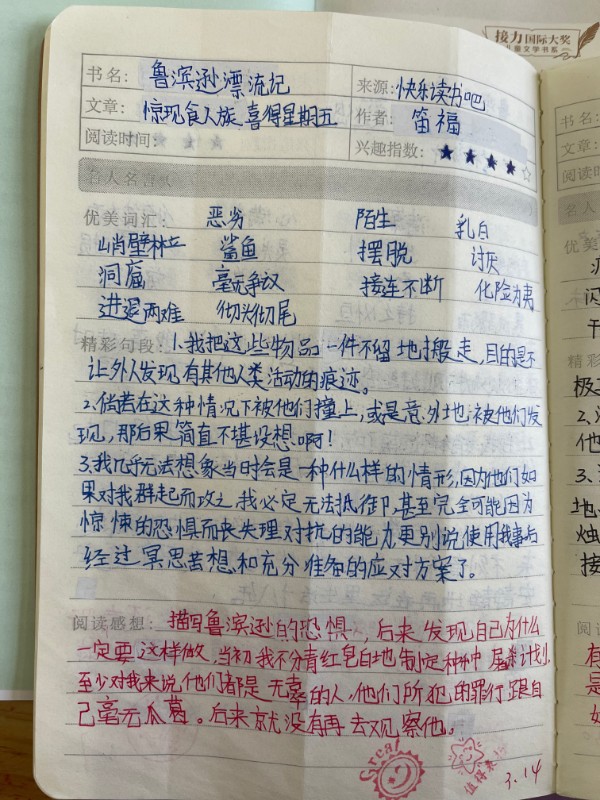 接力国际大奖
儿童文学书系
书名：鲁滨逊漂流记
来源：快乐读书吧
文章：惊现食人族 喜得星期五
作者：笛福
阅读时间：
兴趣指数：★★★★☆
名人名言
优美词汇：恶劣 陌生 乳白
峭壁林立 鲨鱼 摆脱 讨厌
洞窟 毫无争议 接连不断 化险为夷
进退两难 彻头彻尾
精彩句段：1.我把这些物品一件不留地搬走，目的是不
让外人发现有其他人类活动的痕迹。
2.倘若在这种情况下被他们撞上，或是意外地被他们发
现，那后果简直不堪设想啊！
3.我几乎无法想象当时会是一种什么样的情形，因为他们如
果对我群起而攻之，我必定无法抵御，甚至完全可能因为
惊悚的恐惧而丧失理对抗的能力，更别说使用我事后
经过冥思苦想和充分准备的应对方案了。
阅读感想：描写鲁滨逊的恐惧，后来发现自己为什么
一定要这样做，当初我不分青红皂白地制定种种屠杀计划，
至少对我来说他们都是无辜的人，他们所犯的罪行跟自
己毫无瓜葛。后来就没有再去观察他。
Great
3.14
书名：
文章：
阅读时